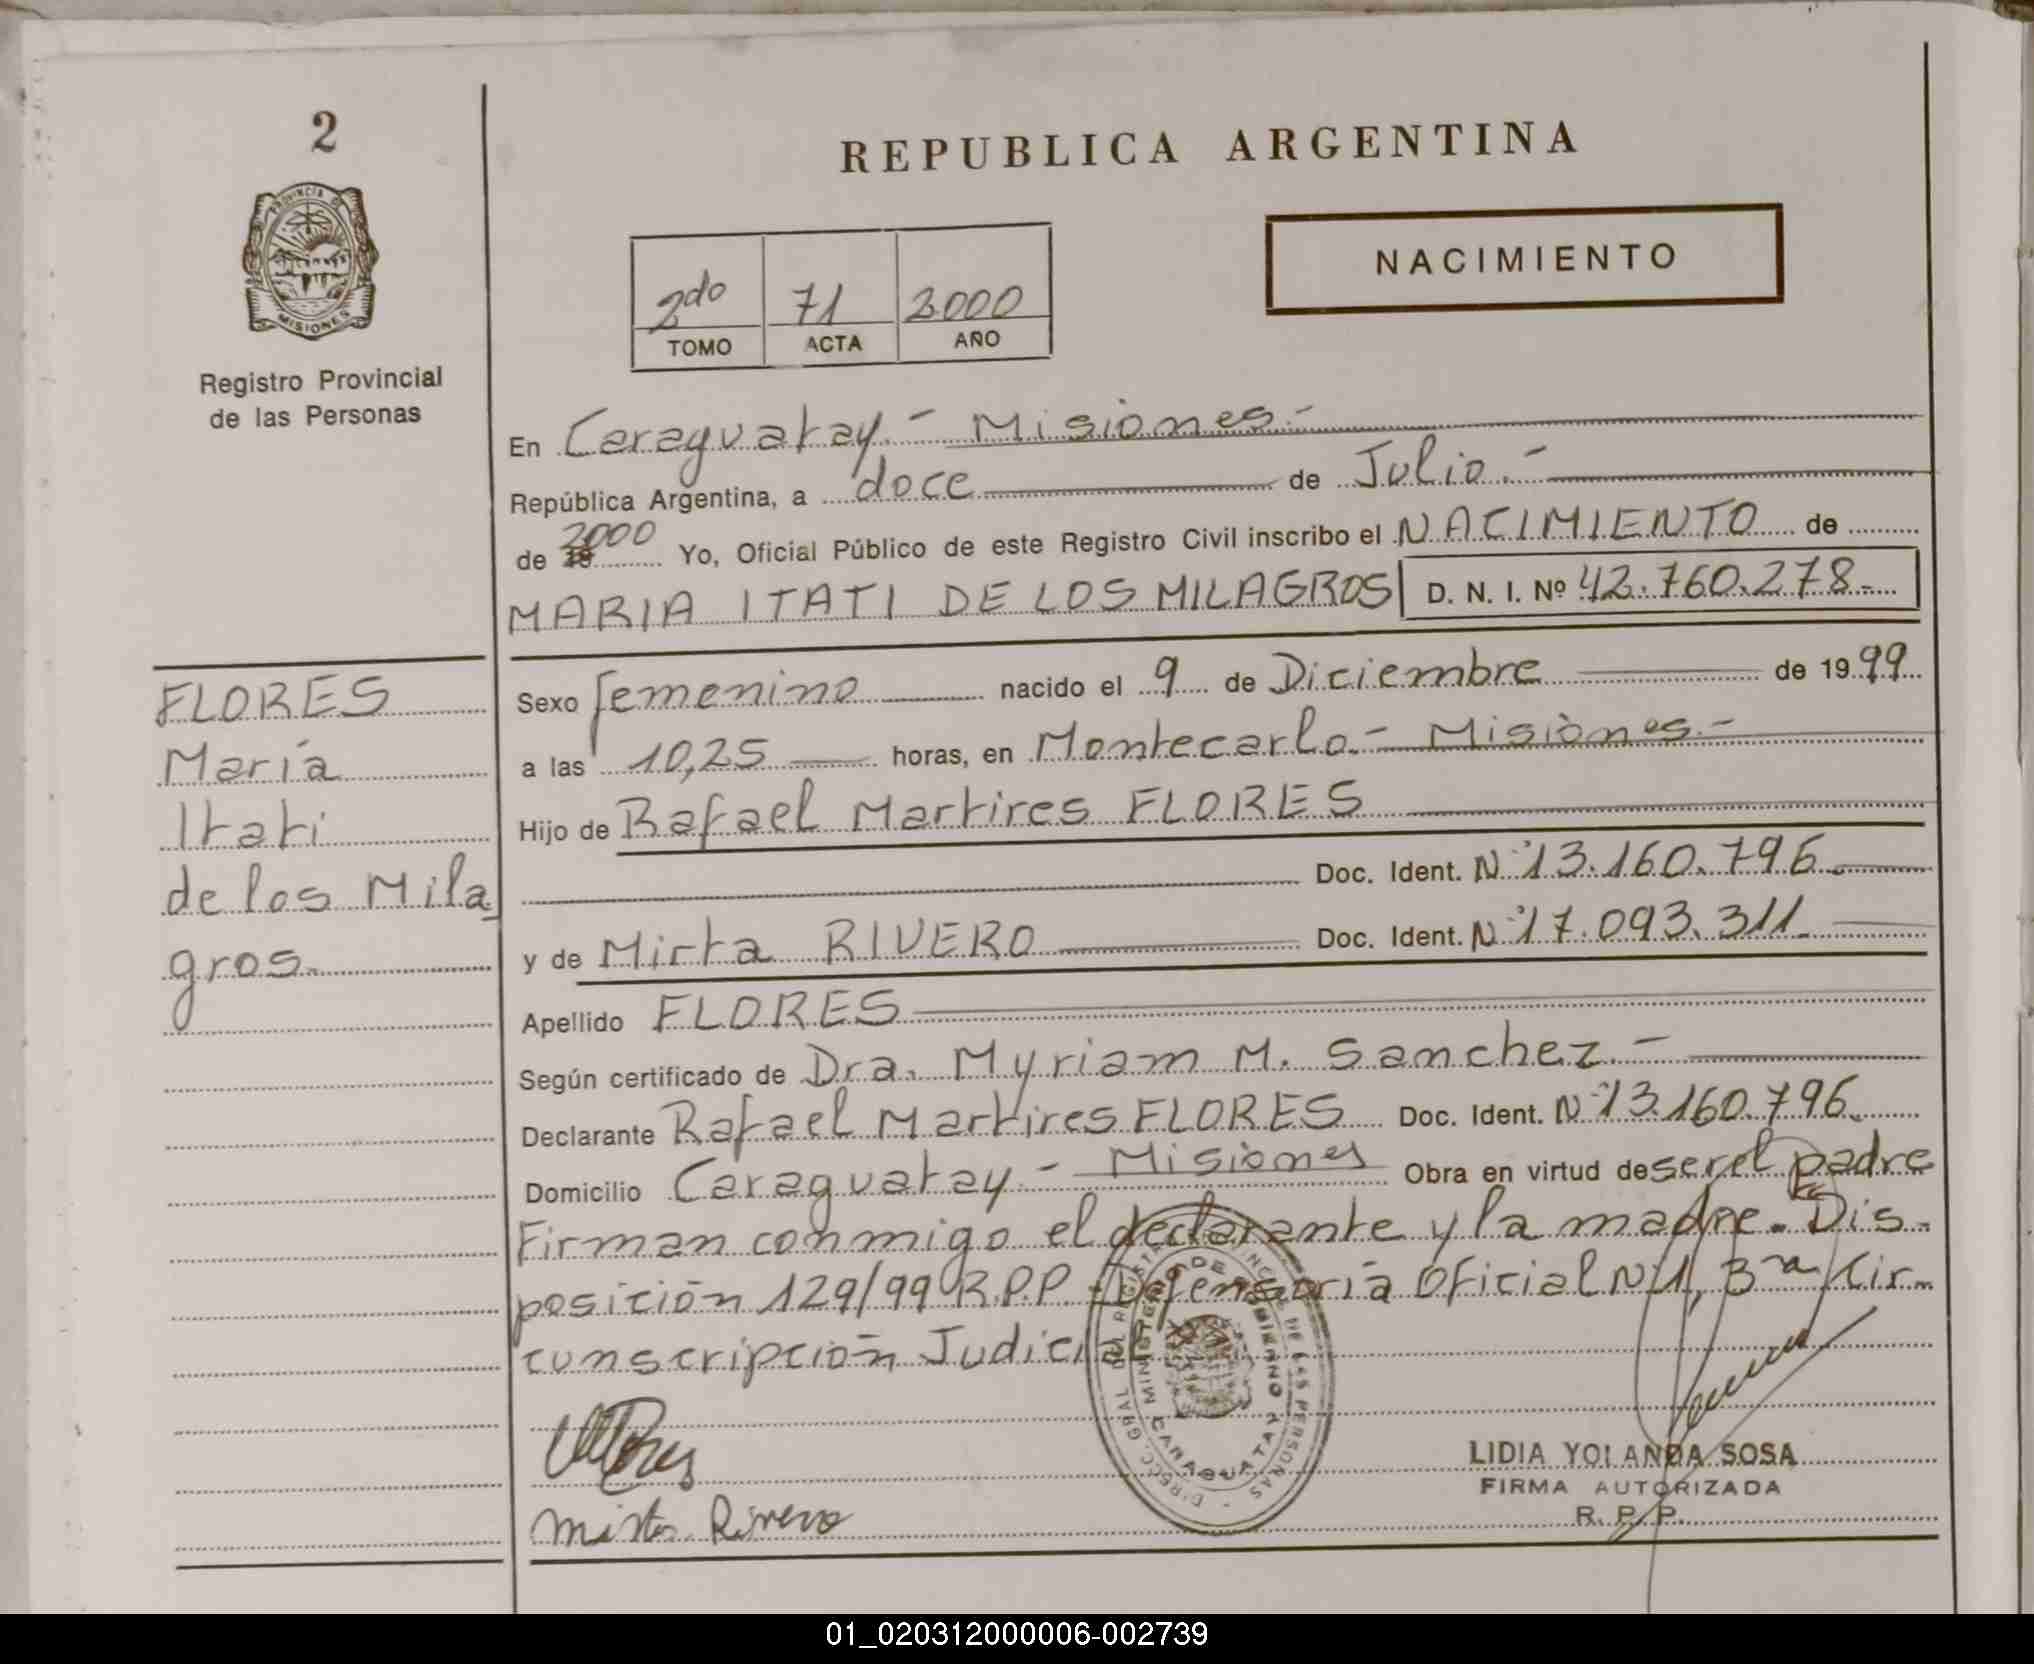 2
PROVINCIA DE
MISIONES
Registro Provincial
de las Personas
REPUBLICA ARGENTINA
2do 71 2000
TOMO ACTA AÑO
NACIMIENTO
En Caraguatay.- Misiones.-
República Argentina, a doce de Julio.-
de 2000 Yo, Oficial Público de este Registro Civil inscribo el NACIMIENTO de
MARIA ITATI DE LOS MILAGROS D. N. I. Nº 42.760.278.-
FLORES
María
Itati
de los Mila
gros.
Sexo femenino nacido el 9 de Diciembre de 1999
a las 10,25 horas, en Montecarlo.- Misiones.-
Hijo de Rafael Martires FLORES
Doc. Ident. Nº 13.160.796.
y de Mirta RIVERO Doc. Ident. Nº 17.093.311.
Apellido FLORES
Según certificado de Dra. Myriam M. Sanchez.-
Declarante Rafael Martires FLORES Doc. Ident. Nº 13.160.796.
Domicilio Caraguatay.- Misiones Obra en virtud de ser el padre
Firman conmigo el declarante y la madre. Dis-
posición 129/99 R.P.P. Defensoría Oficial Nº 1, 3ra Cir-
cunscripción Judicial
Mirta Rivero
LIDIA YOLANDA SOSA
FIRMA AUTORIZADA
R. P. P.
01_020312000006-002739